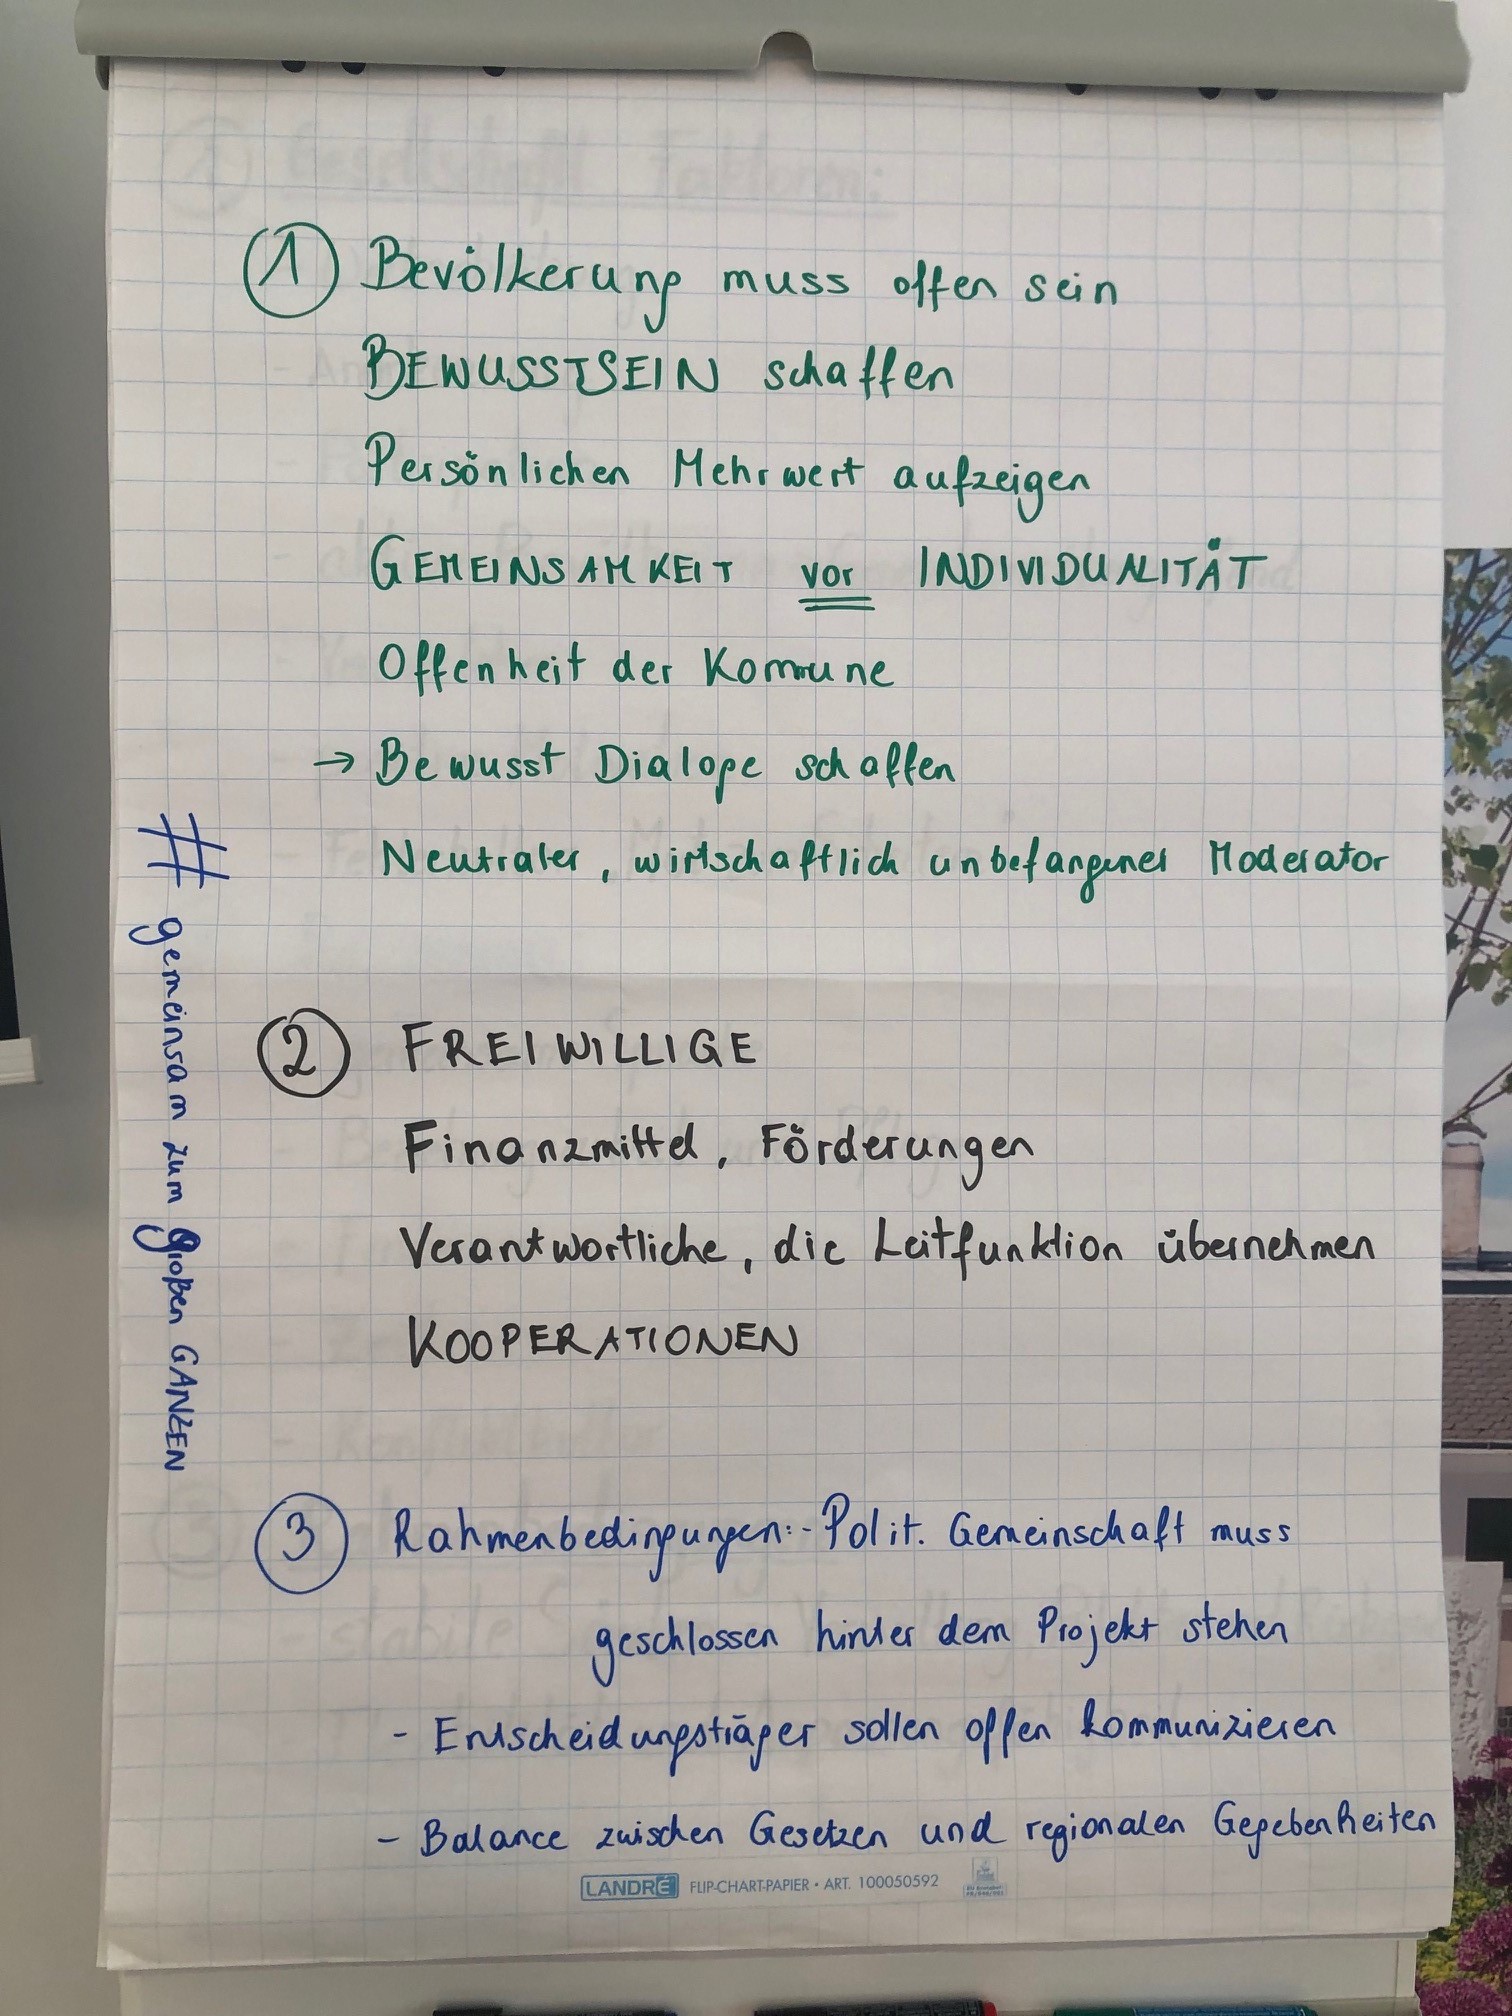 ① Bevölkerung muss offen sein
BEWUSSTSEIN schaffen
Persönlichen Mehrwert aufzeigen
GEMEINSAMKEIT vor INDIVIDUALITÄT
Offenheit der Kommune
→ Bewusst Dialoge schaffen
Neutraler, wirtschaftlich unbefangener Moderator
# gemeinsam zum großen GANZEN
② FREIWILLIGE
Finanzmittel, Förderungen
Verantwortliche, die Leitfunktion übernehmen
KOOPERATIONEN
③ Rahmenbedingungen: - Polit. Gemeinschaft muss
geschlossen hinter dem Projekt stehen
- Entscheidungsträger sollen offen kommunizieren
- Balance zwischen Gesetzen und regionalen Gegebenheiten
LANDRÉ FLIP-CHART-PAPIER • ART. 100050592